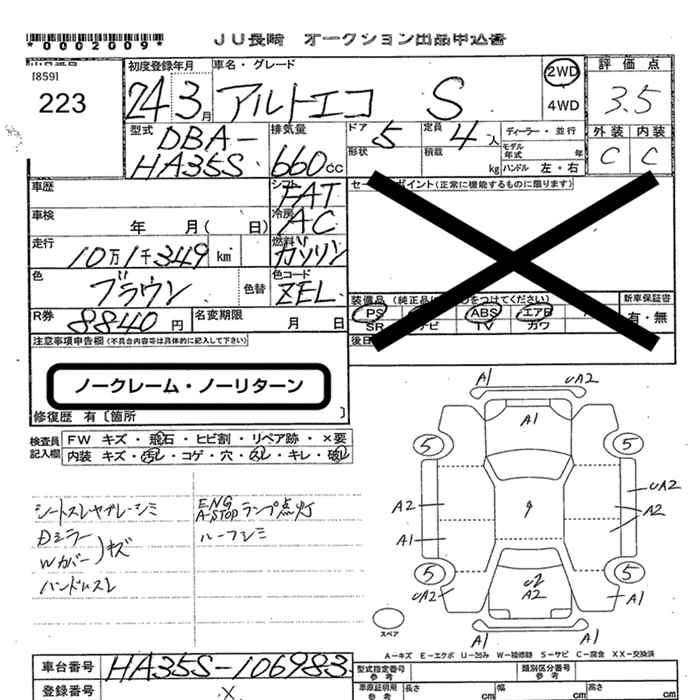 *0002009*
JU長崎 オークション出品申込書
[859]
223
初度登録年月
24 3月
車名・グレード
アルトエコ S
2WD
4WD
評価点
3.5
外装 内装
C C
型式
DBA-
HA35S
排気量
660cc
ドア 5
形状
定員 4人
積載 kg
ディーラー・並行
モデル年式 年
ハンドル 左・右
車歴
シフト FAT
車検 年 月( 日)
冷房 AC
走行 10万1千349 km
燃料 ガソリン
色 ブラウン 色替
色コード ZEL
R券 8840円
名変期限 月 日
セールスポイント(正常に機能するものに限ります)
装備品 (純正品に○をつけてください)
PS ABS エアB
SR ナビ TV カワ
新車保証書
有・無
後日
注意事項申告欄(不具合内容等は具体的に記入して下さい)
ノークレーム・ノーリターン
修復歴 有〔箇所 〕
検査員記入欄
FW キズ・飛石・ヒビ割・リペア跡・×要
内装 キズ・汚レ・コゲ・穴・スレ・キレ・破レ
シートスレヤブレシミ
Dミラー
Wカバー キズ
ハンドルスレ
ENG
A-STOP ランプ点灯
ルーフシミ
A1 UA2
A1
5 5
A2
A1
9
UA2
A2
5 5
UA2
A2
A1
A1 UA2
スペア
A-キズ E-エクボ U-凹み W-補修跡 S-サビ C-腐食 XX-交換済
車台番号 HA35S-106983
登録番号 X
型式指定番号
参考
類別区分番号
参考
車庫証明用
参考
長さ cm 幅 cm 高さ cm